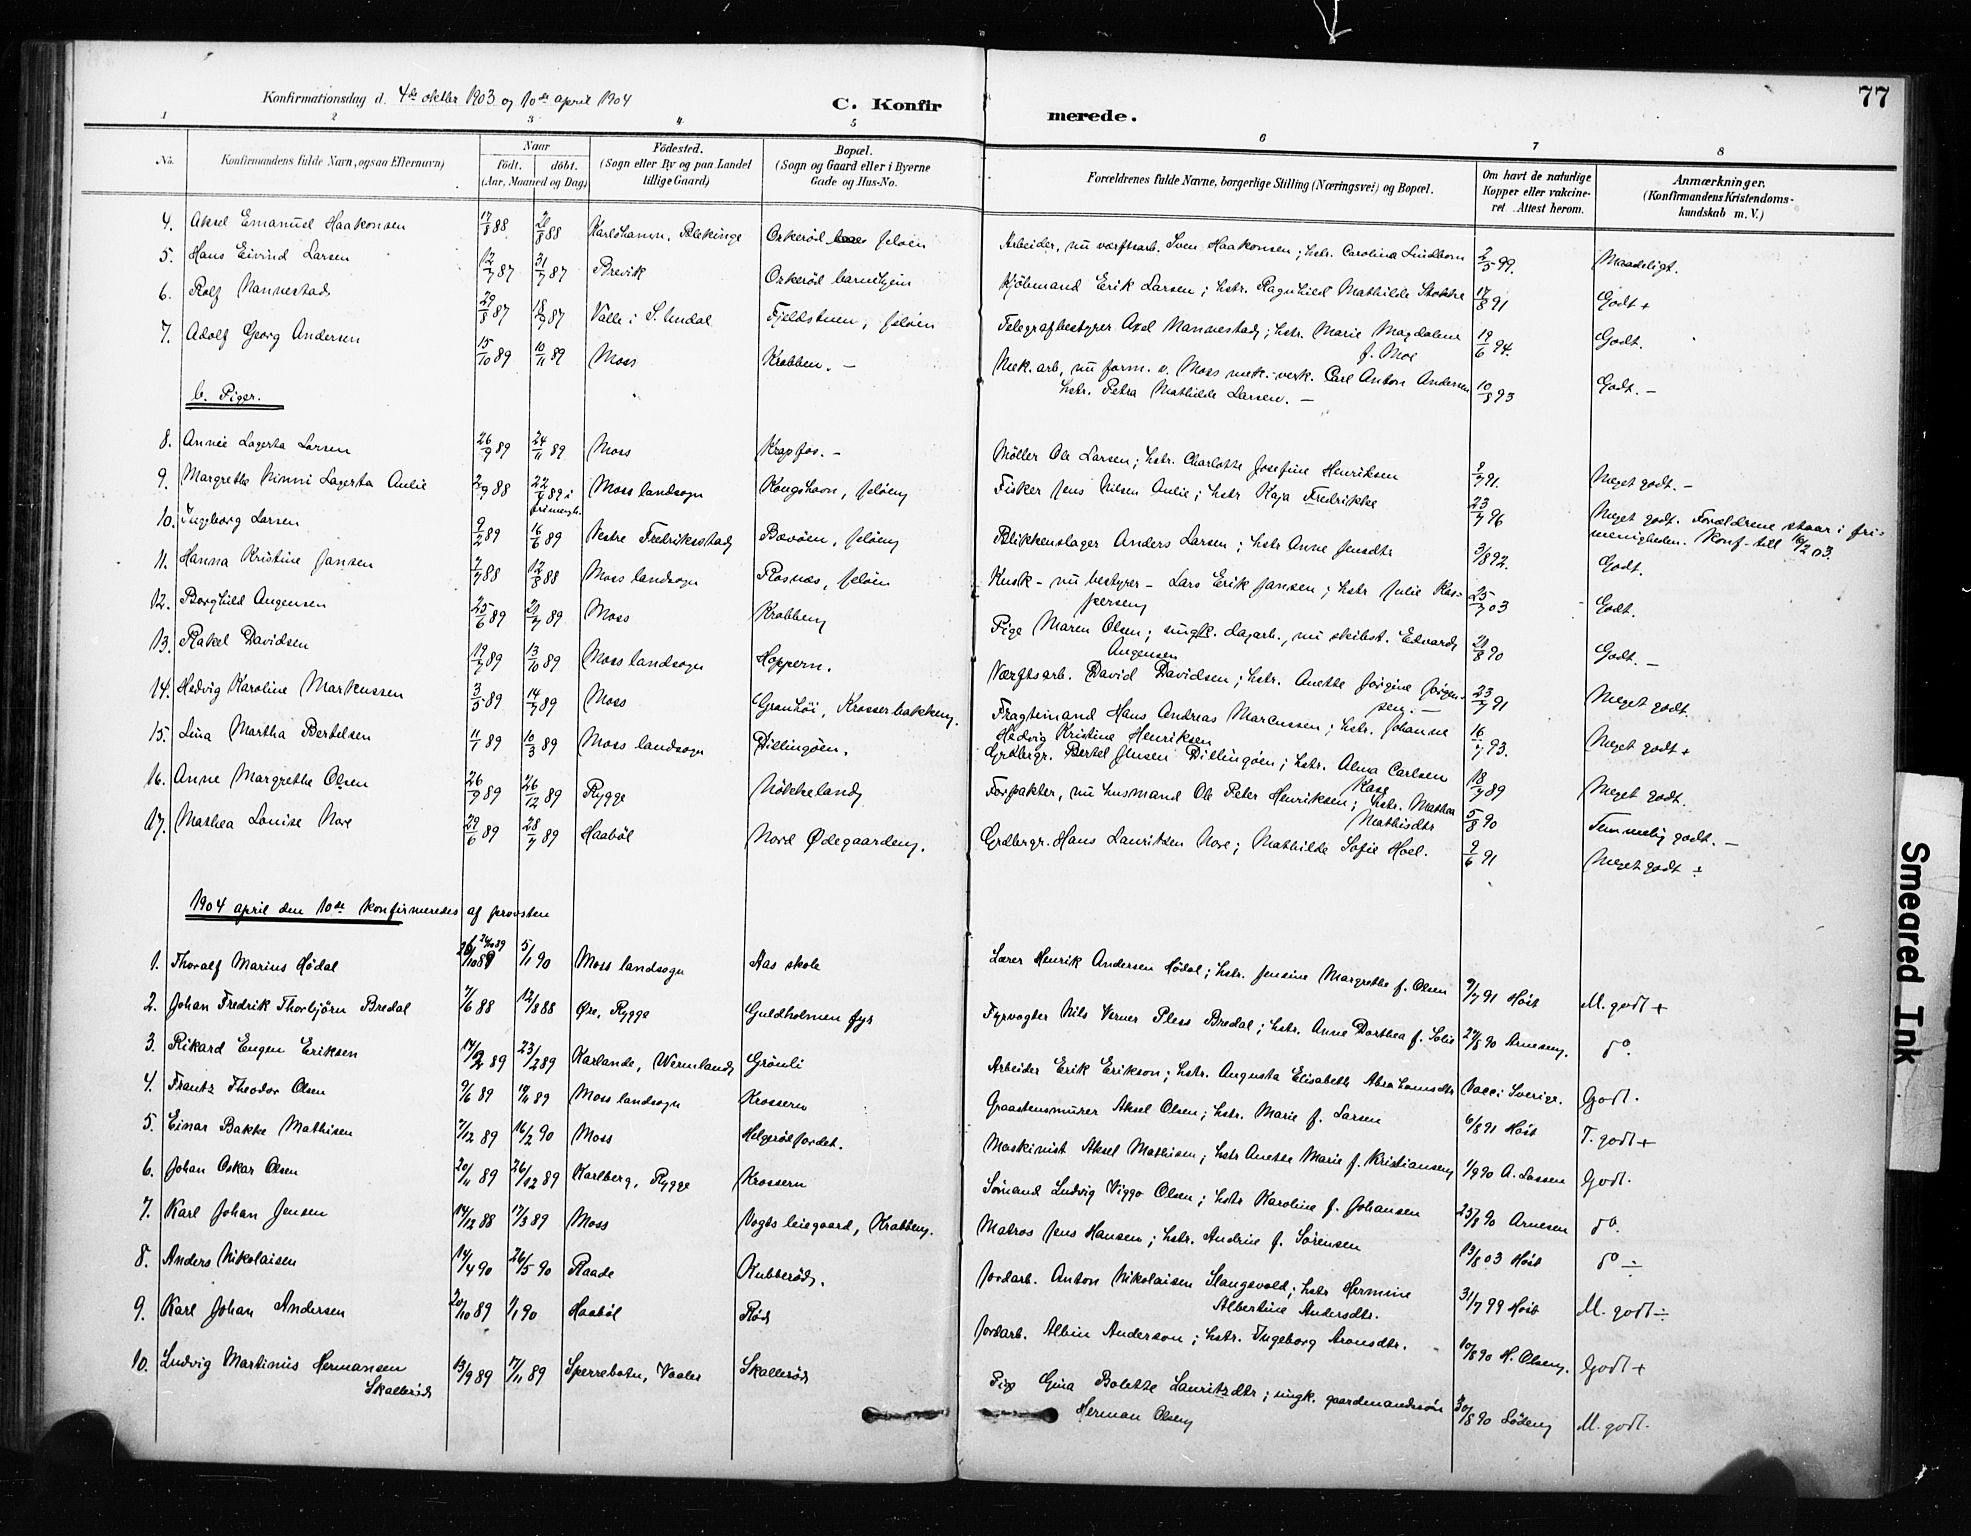 77
Konfirmationsdag d. 4de oktbr 1903 og 10de april 1904
C. Konfirmerede.
1 2 3 4 5 6 7 8
No. Konfirmandens fulde Navn, ogsaa Efternavn) Naar født. døbt. (Aar, Maaned og Dag) Fødested. (Sogn eller By og paa Landet tillige Gaard) Bopæl. (Sogn og Gaard eller i Byerne Gade og Hus-No. Forældrenes fulde Navne, borgerlige Stilling (Næringsvei) og Bopæl. Om havt de naturlige Kopper eller vakcineret. Attest herom. Anmærkninger. (Konfirmandens Kristendomskundskab m. V.)
4. Aksel Emanuel Haakonsen 17/8 88 Karlshamn, Blekinge Orkerød Jeløen Arbeider, nu værftsarb. Sven Haakonsen; hstr. Carolina Lindbom 2/5 99. Maadeligt.
5. Hans Eivind Larsen 12/7 87 31/7 87 Brevik Orkerød barnehjem Kjøbmand Erik Larsen; hstr. Ragnhild Mathilde Stokke 17/8 91 Godt +
6. Rolf Nannestad 29/8 87 18/9 87 Valle i S. Undal Fjeldstuen, Jeløen Telegrafbestyrer Axel Nannestad; hstr. Marie Magdalene f. Moe 19/6 94. Godt.
7. Adolf Georg Andersen 15/10 89 10/11 89 Moss Krabben. — Mek. arb, nu form. v. Moss mek. verk. Carl Anton Andersen hstr. Petra Mathilde Larsen. — 10/8 93 Godt. —
b. Piger.
8. Annie Lagerta Larsen 26/9 89 24/11 89 Moss Krapfos. — Møller Ole Larsen; hstr. Charlotte Josefine Henriksen 9/7 91. Meget godt. —
9. Margrethe Ninni Lagerta Aulie 2/9 88 22/9 89 i frimengh. Moss landsogn Kongshavn, Jeløen Fisker Jens Nilsen Aulie; hstr Kaja Fredrikke 23/7 96 Meget godt. Forældrene staar i frimenigheden. Konf. till 16/2 03.
10. Ingeborg Larsen 9/2 89 16/6 89 Vestre Fredriksstad Bævøen, Jeløen Blikkenslager Anders Larsen; hstr Anne Jensdtr 3/8 92. Godt.
11. Hanna Kristine Jansen 7/7 88 12/8 88 Moss landsogn Rosnæs, Jeløen Kusk – nu bestyrer – Lars Erik Jansen; hstr Julie Kaspersen 25/7 03 Godt.
12. Borghild Angensen 25/6 89 21/7 89 Moss Krabben Pige Maren Olsen; ungk. dagarb., nu skibst. Edvard Angensen 21/8 90 Godt. —
13. Rakel Davidsen 19/7 89 13/10 89 Moss landsogn Hoppern. Værftsarb. David Davidsen; hstr. Anette Jørgine Jørgensen. — 23/7 91 Meget godt.
14. Hedvig Karoline Markussen 3/5 89 14/7 89 Moss Granhøi, Krosserbakken. Fragtemand Hans Andreas Marcussen; hstr. Johanne Hedvig Kristine Henriksen 16/7 93. Meget godt +
15. Lina Martha Bertelsen 11/1 89 10/3 89 Moss landsogn Dillingøen. Grdbrgr. Bertel Jensen Dillingøen; hstr. Alma Carlsen Kase 18/7 89 Meget godt.
16. Anne Margrethe Olsen 26/9 89 26/12 89 Rygge Nøkkeland Forpakter, nu husmand Ole Peter Henriksen; hstr. Mathea Mathisdtr 5/8 90 Temmelig godt. —
17. Mathea Louise Nore 29/6 89 28/7 89 Haabøl Nord Ødegaarden. Grdbrgr. Hans Lauritsen Nore; Mathilde Sofie Hoel. 9/6 91 Meget godt ÷
1904 april den 10de konfirmeredes af provsten
1. Thoralf Marius Hødal 24/10 89 5/1 90 Moss landsogn Aas skole Lærer Henrik Andersen Hødal; hstr. Jensine Margrethe f. Olsen 9/7 91 Høst M. godt +
2. Johan Fredrik Thorbjørn Bredal 7/6 88 12/8 88 Øre, Rygge Guldholmen fyr Fyrvogter Nils Verner Pless Bredal; hstr. Anne Dorthea f. Solie 27/8 90 Arnesen. do.
3. Rikard Eugen Eriksen 14/2 89 23/2 89 Karlanda, Wermland Grønli Arbeider Erik Erikson; hstr. Augusta Elisabeth Abrahamsdtr Vacc. i Sverige. Godt.
4. Frantz Theodor Olsen 9/6 89 Moss landsogn Krossern Graastensmurer Aksel Olsen; hstr. Marie f. Larsen 6/8 91 Høst T. godt +
5. Einar Bakke Mathisen 7/12 89 16/2 90 Moss Helgerødjordet. Maskinist Aksel Mathisen; hstr Anette Marie f. Kristiansen 1/9 90 A. Lassen Godt.
6. Johan Oskar Olsen 20/11 89 26/12 89 Karlberg, Rygge Krossern Sømand Ludvig Viggo Olsen; hstr Karoline f. Johansen 23/8 90 Arnesen do.
7. Karl Johan Jensen 14/12 88 17/3 89 Moss Vogts leiegaard, Krabben. Matros Jens Hansen; hstr. Andrine f. Sørensen 13/8 03 Høst do ÷
8. Anders Nikolaisen 14/4 90 26/5 90 Raade Kubberød. Jordarb. Anton Nikolaisen Slangsvold; hstr Hermine Albertine Andersdtr. 31/7 99 Høst M. godt ÷
9. Karl Johan Andersen 20/10 89 1/1 90 Haabøl Rød Jordarb. Albin Anderson; hstr. Ingeborg Aronsdtr. 10/8 90 H. Olsen. Godt +
10. Ludvig Martinius Hermansen Skallerød 13/9 89 17/11 89 Sperrebotn, Vaaler Skallerød Pige Gina Bolette Lauritzdtr; ungk. gaardmandssøn Herman Olsen 30/8 90 Løden M. godt.
Smeared Ink